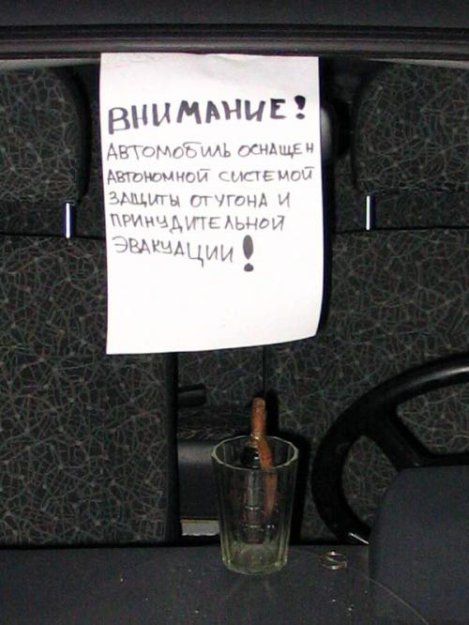 ВНИМАНИЕ!
АВТОМОБИЛЬ ОСНАЩЕН
АВТОНОМНОЙ СИСТЕМОЙ
ЗАЩИТЫ ОТ УГОНА И
ПРИНУДИТЕЛЬНОЙ
ЭВАКУАЦИИ!